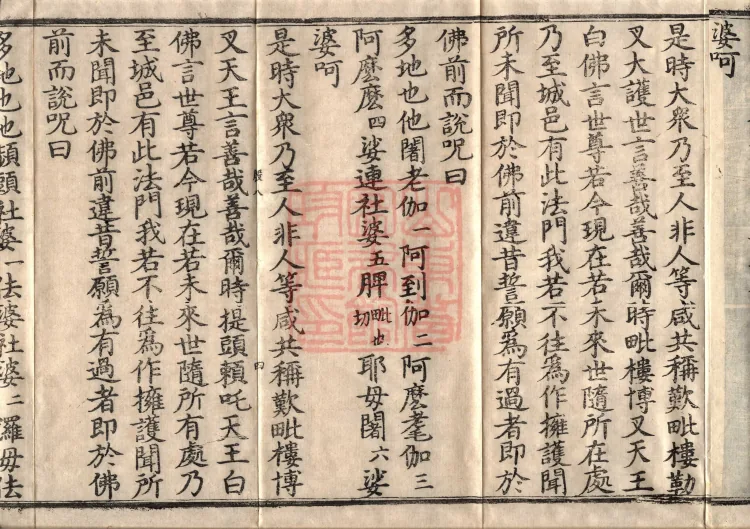 婆呵
是時大衆乃至人非人等咸共稱歎毗樓勒
叉大護世言善哉善哉爾時毗樓博叉天王
白佛言世尊若今現在若未來世隨所在處
乃至城邑有此法門我若不往爲作擁護聞
所未聞即於佛前違昔誓願爲有過者即於
佛前而說呪曰
多地也他闍老伽一阿到伽二阿麼耄伽三
阿麼麼四娑連社婆五脾毗也切耶毋闍六娑
婆呵
是時大衆乃至人非人等咸共稱歎毗樓博
叉天王言善哉善哉爾時提頭頼吒天王白
佛言世尊若今現在若未來世隨所有處乃
至城邑有此法門我若不往爲作擁護聞所
未聞即於佛前違昔誓願爲有過者即於佛
前而說呪曰
多地也他頞頭社婆一法婆社婆二羅毋法
四